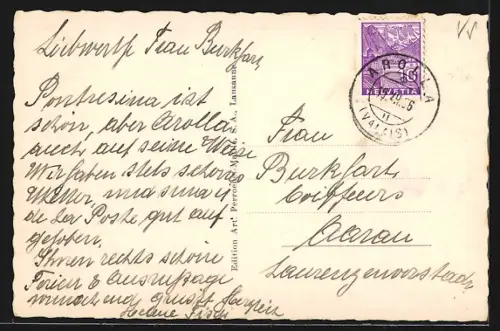 Liebwerte Frau Burkhart
Pontresina ist
schön, aber Arolla
auch auf seine Weise
Wir haben stets schönes
Wetter, und sind im
de la Poste gut auf
gehoben.
Ihnen rechts schöne
Ferien & Ausruhtage
wünschend, grüsst herzlich
Helene
Edition Art. Perrochet Matile, S.A., Lausanne
HELVETIA
10
AROLLA
(VALAIS)
Frau
Burkhart
Coiffeurs
Aarau
Laurenzenvorstadt